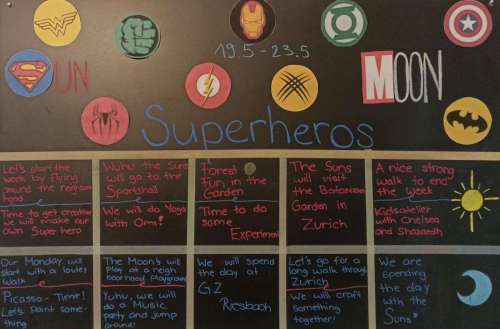 19.5-23.5
UN
MOON
Superheros
Let's start the
week by flying
around the neighbour
hood
Time to get creative
we will make our
own Superhero
Wuhu the Suns
will go to the
Sportshall
We will do Yoga
with Omi!
Forest
fun in the
Garden
Time to do
some
Experiment
The Suns
will visit
the Botanical
Garden in
Zurich
A nice strong
walk to end
the week
Kidsatelier
with Chelsea
and
Our Monday will
start with a lovley
walk
Picasso-Time!
Let's Paint some-
thing
The Moon's will
Play at a neigh
boorhood Playground
Yuhu, we will do
a Music
party and jump
around!
We will spend
the day at
GZ
Riesbach
Let's go for a
long walk through
Zurich
We will craft
something
together!
We are
spending
the day
with the
Suns!